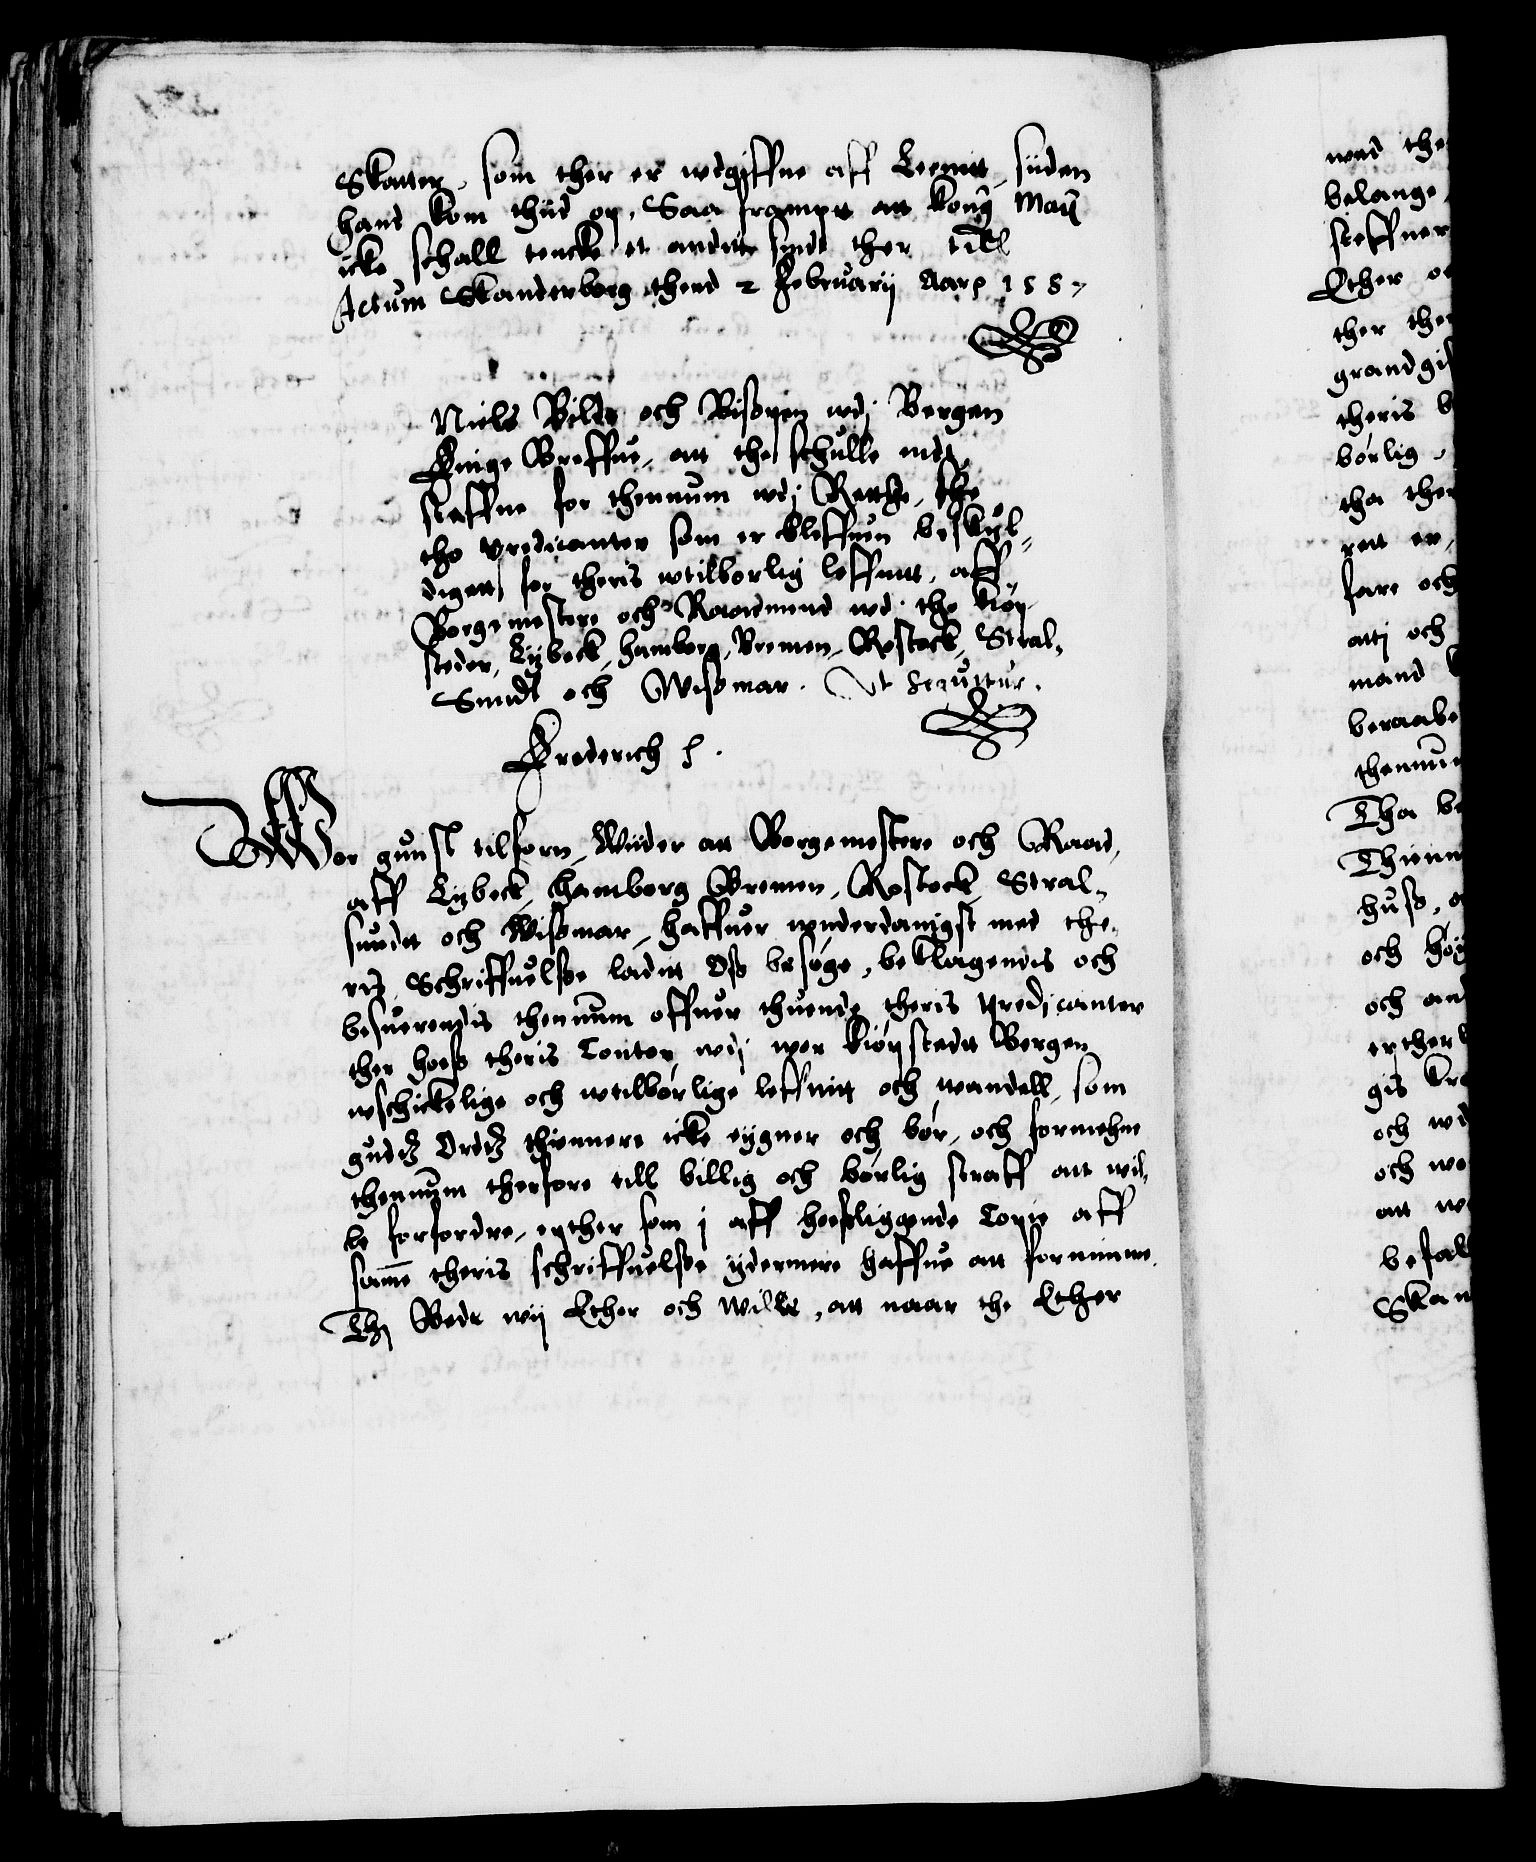 Skatter, som ther er wdgiffne aff Leenitt, siiden
hand kom thiid op, Saa frampt att Kong: May:
icke schall tencke et andett sinde ther till
Actum Skanderborg thend 2 Februarij Aar p 1587
Niels Bilde och Bispen wdj Bergen
Finge Breffue, att the schulle indt
steffne for thennum wdj Rette, the
tho predicanter som er bleffuen beskyl,
digett for theris wtilborlig leffnitt, aff
Borgemestere och Raadmend wdi the Kiøp
steder, Lybeck, Hamborg, Bremen, Rostock, Stral,
Sundt och Wissmar. Vt Sequitur.
Frederich S.
Wor gunst tilforn, Wiider att Borgemestere och Raad,
aff Lybeck, Hamborg Bremen, Rostock, Stral,
sundtt och Wissmar, haffuer wnderdanigst med the,
ris Schriffuelsse ladett Oss besøge, beklagendis och
besuerendis thennum offuer thuende theris predicanter
ther hoess theris Contor wdj wor Kiøpstedt Bergen
wschickelige och wtilbørlige leffnitt och wandell, som
gudz Ordz thiennere icke eygner och bør, och formehne
thennum therfore till billig och børlig straff att wil,
le forfordre, epther som j aff hoessliggende Copie aff
samme theris schriffuelsse ydermere haffue att fornimme.
Thj Bede wij Ether och wille, att naar the Ether
wed the
belange,
steffner
Ether o
ther the
grandgi
theris b
børlig,
tha ther
rett er,
fare och
att j och
mand
beraabe
thennu
Tha be
Thienn
huss, o
och høy
och and
er ther
gis Kro
och wd
och wo
att we
befal
Skan